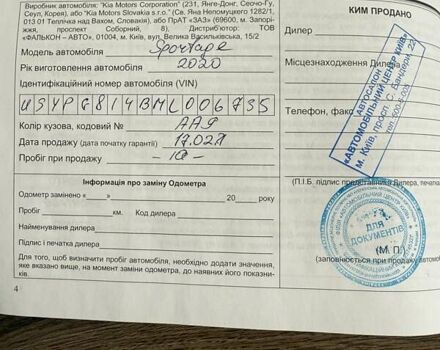 Виробник автомобіля: "Kia Motors Corporation" (231, Янге-Донг, Сеочо-Гу,
Сеул, Корея), або "Kia Motors Slovakia s.r.o." (Св. Яна Непомуцкего 1282/1,
013 01 Теплічка над Вахом, Словакія), або ПрАТ «ЗАЗ» (69600, м. Запорі-
жжя, проспект Соборний, 8). Дистриб'ютор: ТОВ
«ФАЛЬКОН – АВТО», 01004, м. Київ, вул. Велика Васильківська, 15/2
Модель автомобіля Sportage
Рік виготовлення автомобіля 2020
Ідентифікаційний номер автомобіля (VIN)
U5YPG814BML006735
Колір кузова, кодовий №
Дата продажу (дата початку гарантії) 17.02.21
Пробіг при продажу -10-
Інформація про заміну Одометра
Одометр замінено « » 20 року
Пробіг км. Код дилера
Найменування дилера
Підпис і печатка дилера
Для того, щоб визначити пробіг автомобіля, необхідно додати значення,
яке вказано вище, на момент заміни одометра, до наявних його показни-
4
КИМ ПРОДАНО
Дилер
Місцезнаходження Дилера
Телефон, факс
АВТОСАЛОН
«АВТОМОБІЛЬНИЙ ЦЕНТР КИЇВ»
м. Київ, просп. Бандери, 22
(П.І.Б. підпис представника Дилера, печатка
ДЛЯ
ДОКУМЕНТІВ
(М. П.)
(заповнюється при продажу автомобіля